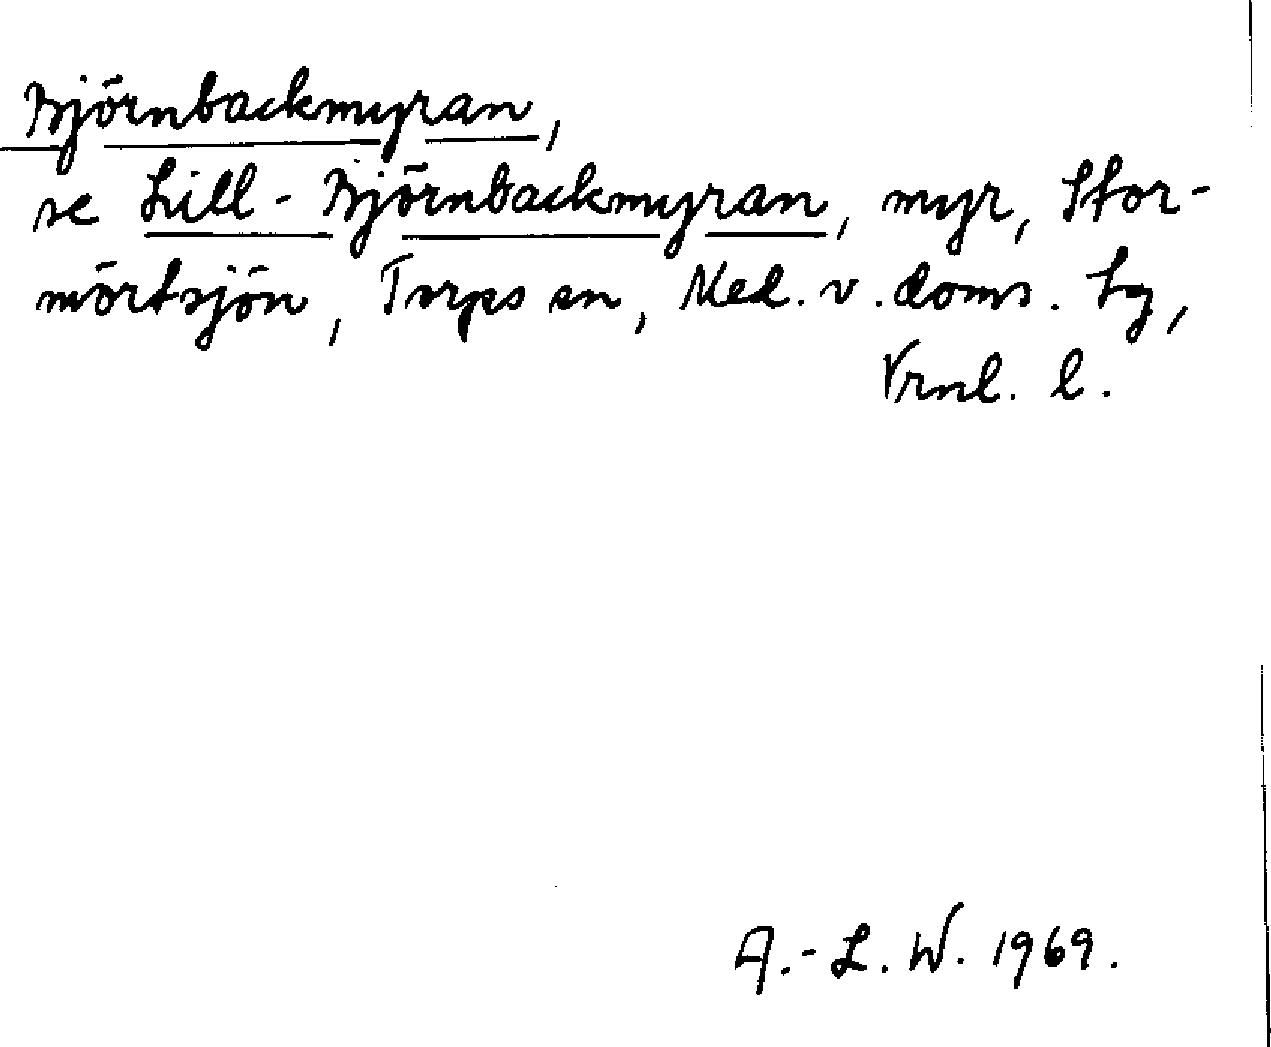 Björnbackmyran,
se Lill-Björnbackmyran, myr, Stor-
mörtsjön, Torps sn, Med. v. doms. tg,
Vrnl. l.
A.-L. W. 1969.